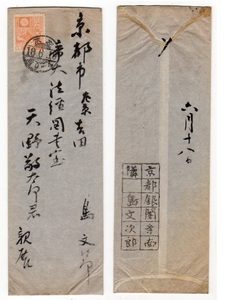 京都市 左京 吉田
帝大 法經圖書室
天野敬太郎君
親展
島 文次郎
六月十八日
京都銀閣寺南
島文次郎